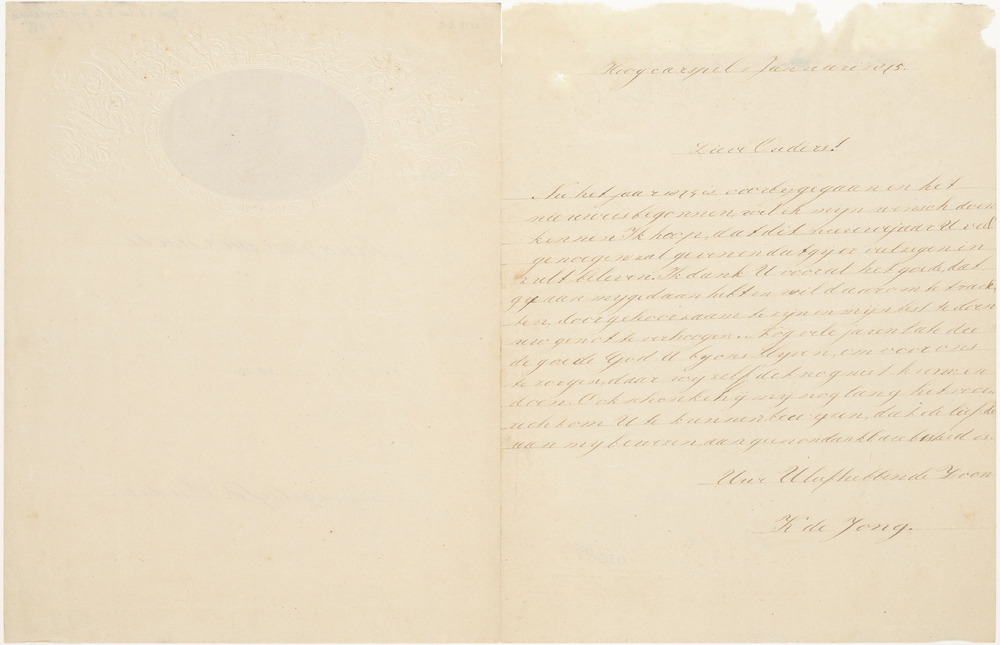 Hoogcarspel Januari 1875.
Lieve Ouders!
Nu het jaar 1874 is voorbijgegaan en het
nieuwe is begonnen, wil ik mijn wensch doen
kennen. Ik hoop, dat dit nieuwejaar U veel
genoegen zal geven en dat gy er veel zegen in
zult beleven. Ik dank U voor al het goede, dat
gy aan my gedaan hebt en wil daarom trach-
ten, door gehoorzaam te zyn en myn best te doen
uw genot te verhoogen. Nog vele jaren late de
de goede God U by ons blyven, om voor ons
te zorgen, daar wy zelf dit nog niet kunnen
doen. Ook schenke hy my nog lang het voor-
recht om U te kunnen bewyzen, dat de liefde
aan my bewezen, aan geen ondankbare besteed is.
Uwe U liefhebbende Zoon
K. de Jong.